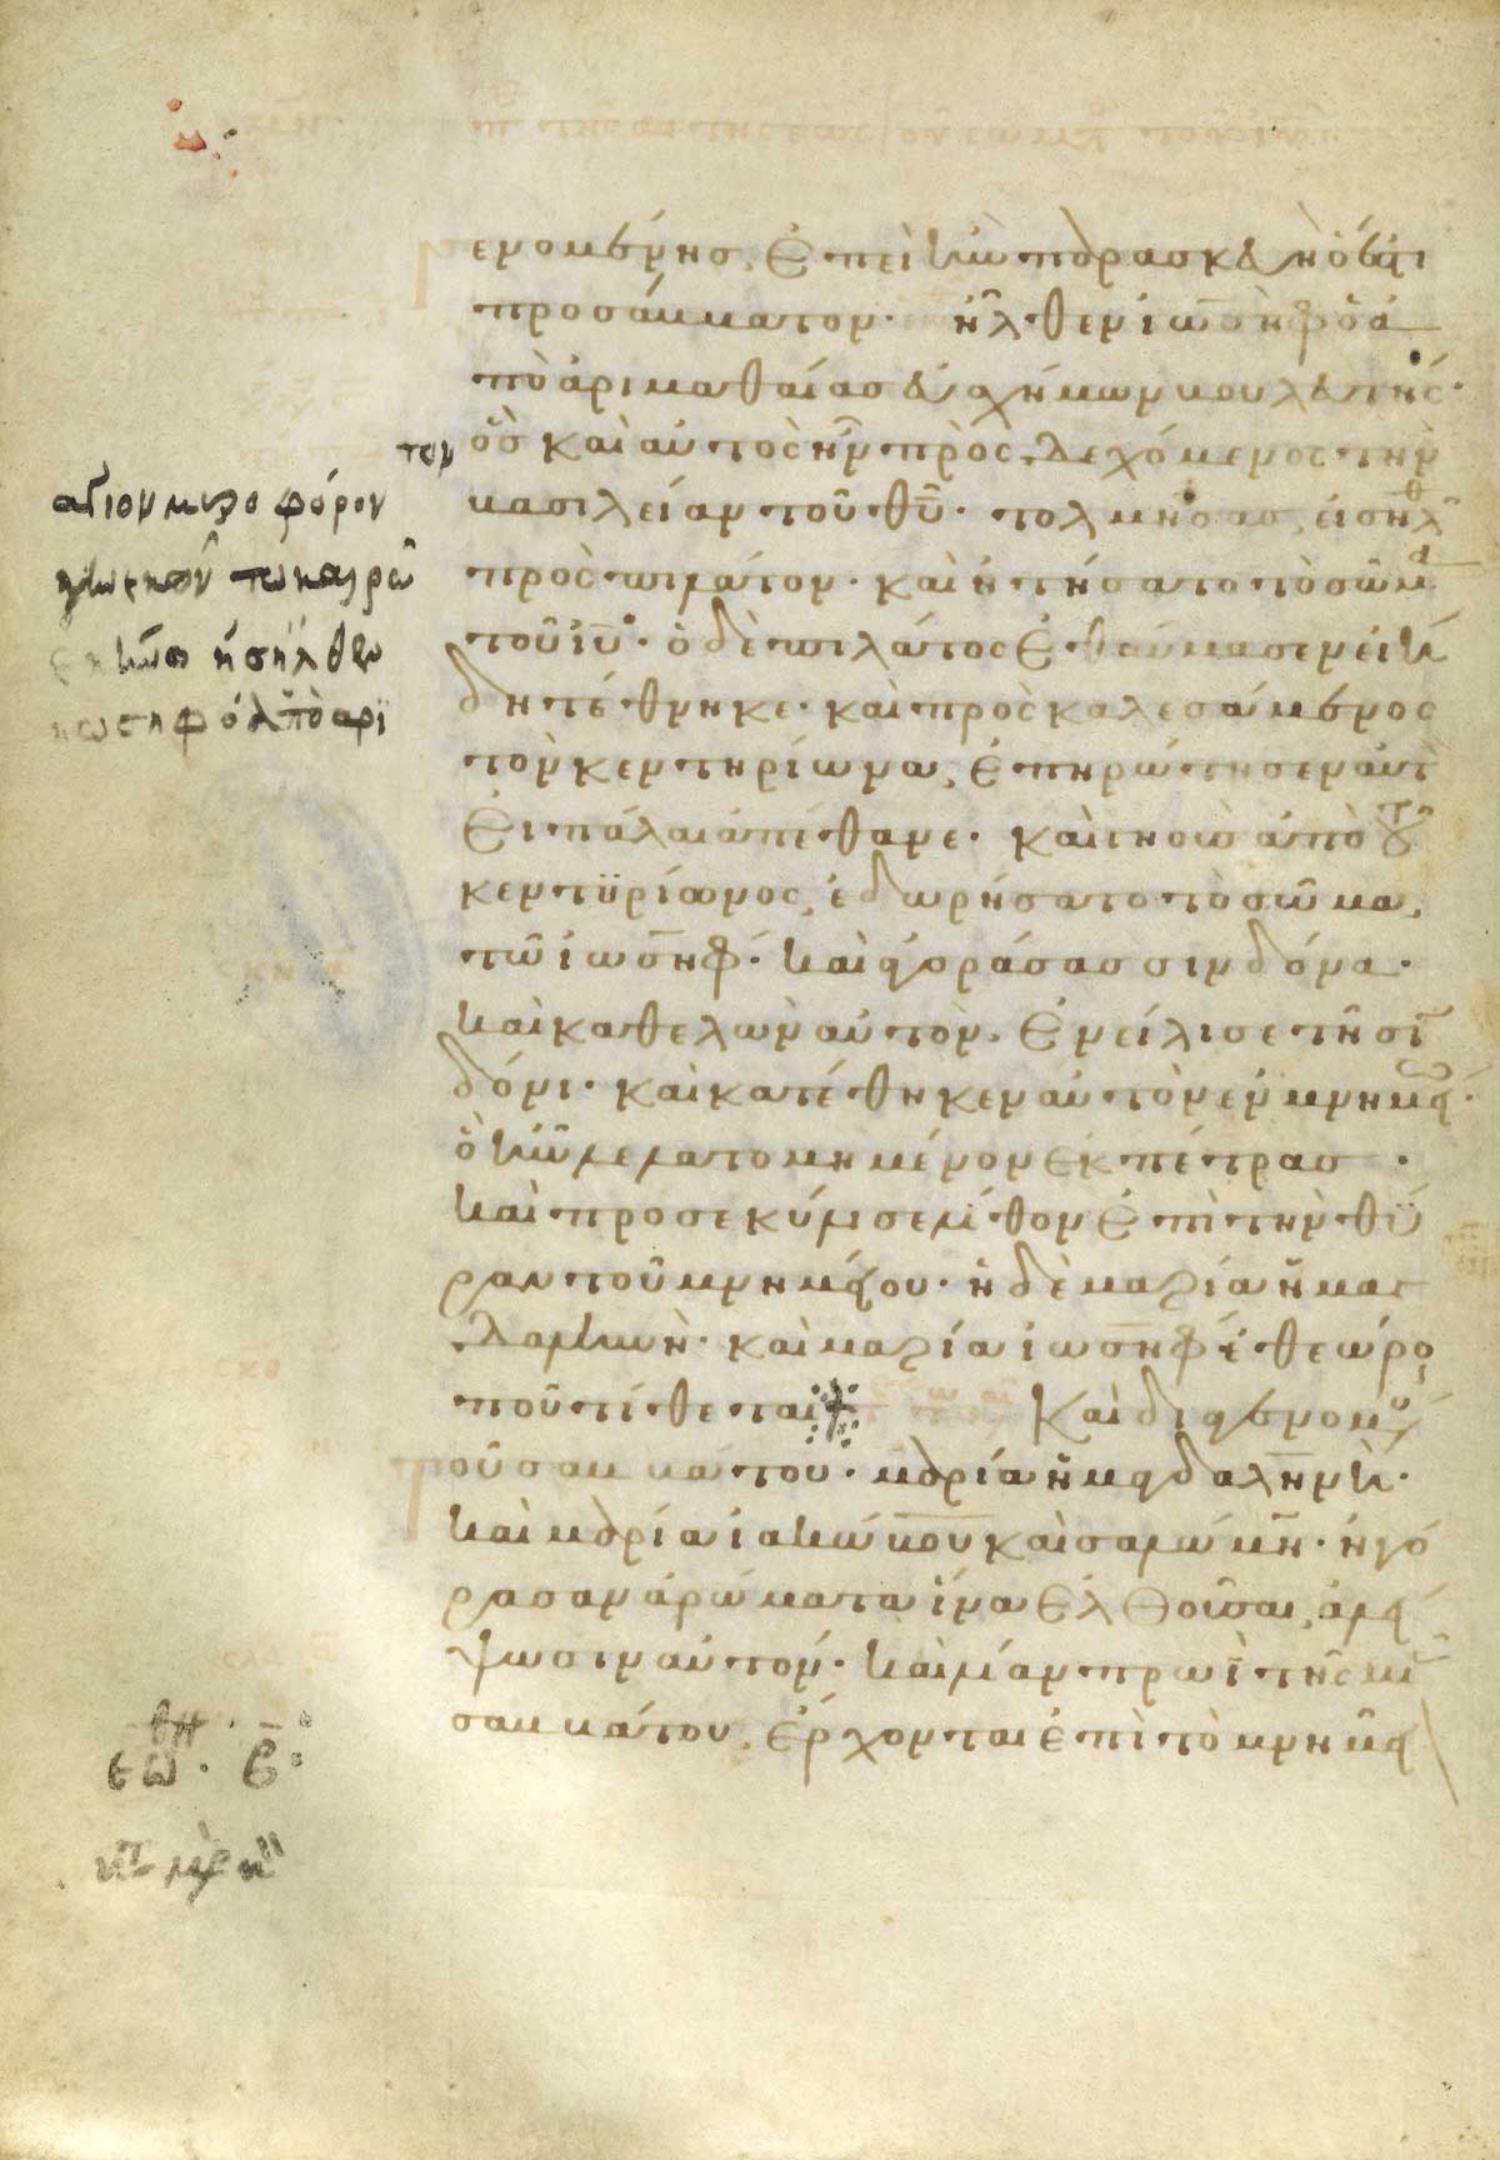 των
αγιον μυροφόρον
τω καιρω
ησηλθεν
ιωσηφ ὁ ἀπὸ αρι
ενομένης, ἐπεὶ ἦν παρασκευὴ ὅ ἐστι
προσάββατον· ἦλθεν ἰωσὴφ ὁ ἀ
πὸ ἀριμαθαίας εὐσχήμων βουλευτής·
ὃς καὶ αὐτὸς ἦν προσδεχόμενος τὴν
βασιλείαν τοῦ θυ· τολμήσας, εἰσῆλθ
πρὸς πιλάτον· καὶ ἠτήσατο τὸ σῶμα
τοῦ ιυ· ὁ δὲ πιλάτος ἐθαύμασεν εἰ ἤ
δη τέθνηκε· καὶ προσκαλεσάμενος
τὸν κεντηρίωνα, ἐπηρώτησεν αὐτ
εἰ πάλαι ἀπέθανε· καὶ γνοὺς ἀπὸ τοῦ
κεντϋρίωνος, ἐδωρήσατο τὸ σῶμα,
τῶ ἰωσήφ· καὶ ἀγοράσας σινδόνα·
καὶ καθελὼν αὐτὸν, ἐνείλισε τῆ σι
δόνι· καὶ κατέθηκεν αὐτὸν ἐν μνημείω·
ὃ ἦν λελατομημένον ἐκ πέτρας·
καὶ προσεκύλισε λίθον ἐπὶ τὴν θύ
ραν τοῦ μνημείου· ἡ δὲ μαρία ἡ μαγ
δαληνὴ· καὶ μαρία ἰωσὴφ ἐθεώρο
ποῦ τίθεται Καὶ διαγενομέν
οῦ σαββάτου· μαρία ἡ μαγδαληνὴ·
καὶ μαρία ἰακώβου καὶ σαλώμη· ἠγό
ρασαν ἀρώματα ἵνα ἐλθοῦσαι, ἀλεί
ψωσιν αὐτόν· καὶ λίαν πρωῒ τῆς μι
σαββάτου, ἔρχονται ἐπὶ τὸ μνημεῖ
εω· β